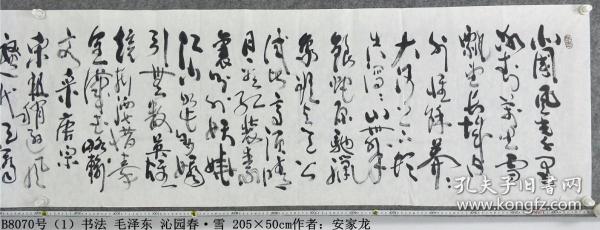 北国风光千里
冰封万里雪
飘望长城内
外惟馀莽
大河上下顿
失滔滔山舞
银蛇原驰蜡
象欲与天公
试比高须晴
日看红装素
裹分外妖娆
江山如此多娇
引无数英雄
竞折腰惜秦
皇汉武略输
文采唐宗
宋祖稍逊风
骚一代天骄
孔夫子旧书网
B8070号（1）书法 毛泽东 沁园春·雪 205×50cm作者：安家龙